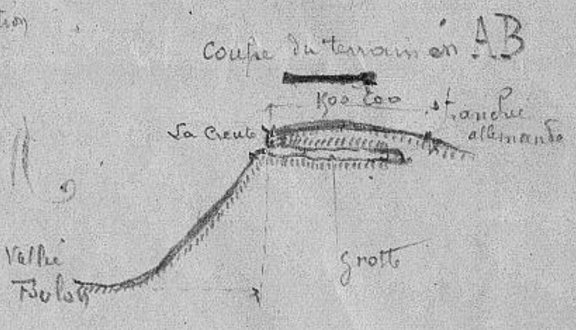 tion
Coupe du terrain en AB
150 200
La Creute
tranchée
allemande
grotte
Vallée